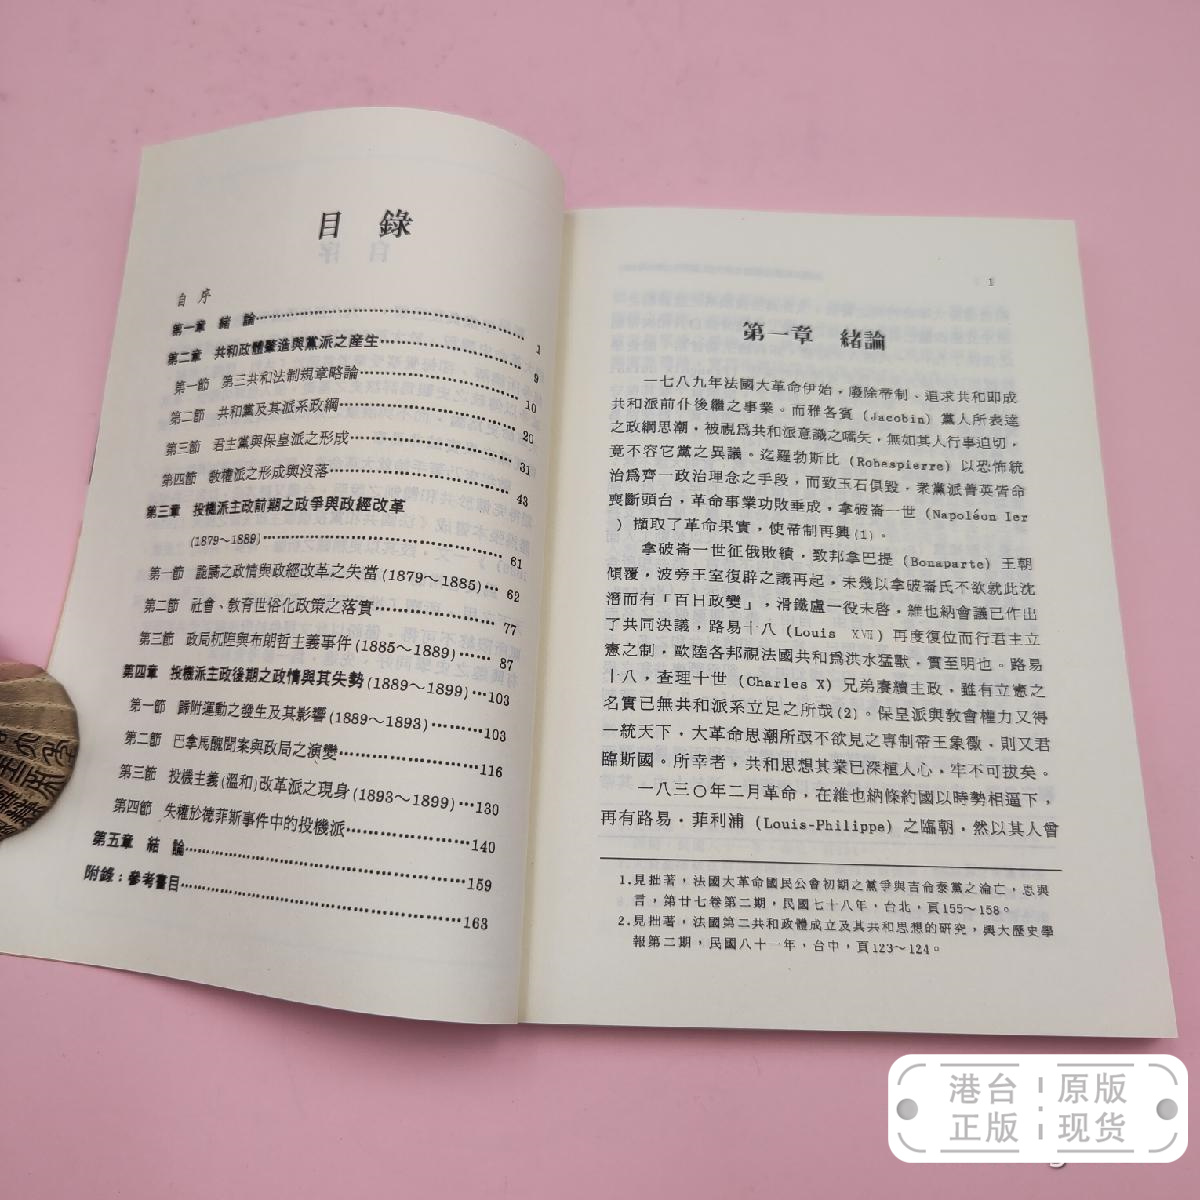 目錄
自序
第一章 緒論 1
第二章 共和政體肇造與黨派之產生 9
第一節 第三共和法制規章略論 10
第二節 共和黨及其派系政綱 20
第三節 君主黨與保皇派之形成 31
第四節 教權派之形成與沒落 43
第三章 投機派主政前期之政爭與政經改革
(1879～1889) 61
第一節 之政情與政經改革之失當 (1879～1885) 62
第二節 社會、教育世俗化政策之落實 77
第三節 政局杌隉與布朗哲主義事件 (1885～1889) 87
第四章 投機派主政後期之政情與其失勢 (1889～1899) 103
第一節 歸附運動之發生及其影響 (1889～1893) 103
第二節 巴拿馬醜聞案與政局之演變 116
第三節 投機主義(溫和)改革派之現身 (1893～1899) 130
第四節 失權於德菲斯事件中的投機派 140
第五章 結論 159
附錄：參考書目 163
1
第一章 緒論
一七八九年法國大革命伊始，廢除帝制、追求共和即成
共和派前仆後繼之事業。而雅各賓 (Jacobin) 黨人所表達
之政綱思潮，被視爲共和派意識之嚆矢，無如其人行事迫切，
竟不容它黨之異議。迄羅勃斯比 (Robespierre) 以恐怖統
治爲齊一政治理念之手段，而致玉石俱毀，衆黨派菁英皆命
喪斷頭台，革命事業功敗垂成，拿破崙一世 (Napoléon Ier
) 擷取了革命果實，使帝制再興(1)。
拿破崙一世征俄敗績，致邦拿巴提 (Bonaparte) 王朝
傾覆，波旁王室復辟之議再起，未幾以拿破崙氏不欲就此沈
潛而有「百日政變」，滑鐵盧一役未啓，維也納會議已作出
了共同決議，路易十八 (Louis XVIII) 再度復位而行君主立
憲之制，歐陸各邦視法國共和爲洪水猛獸，實至明也。路易
十八，查理十世 (Charles X) 兄弟賡續主政，雖有立憲之
名實已無共和派系立足之所哉(2)。保皇派與教會權力又得
一統天下，大革命思潮所亟不欲見之專制帝王象徵、則又君
臨斯國。所幸者，共和思想其業已深植人心，牢不可拔矣。
一八三〇年二月革命，在維也納條約國以時勢相逼下，
再有路易・菲利浦 (Louis-Philippe) 之臨朝，然以其人曾
1.見拙著，法國大革命國民公會初期之黨爭與吉侖泰黨之淪亡，思與
言，第廿七卷第二期，民國七十八年，台北，頁155～158。
2.見拙著，法國第二共和政體成立及其共和思想的研究，興大歷史學
報第二期，民國八十一年，台中，頁123～124。
港台 原版
正版 现货